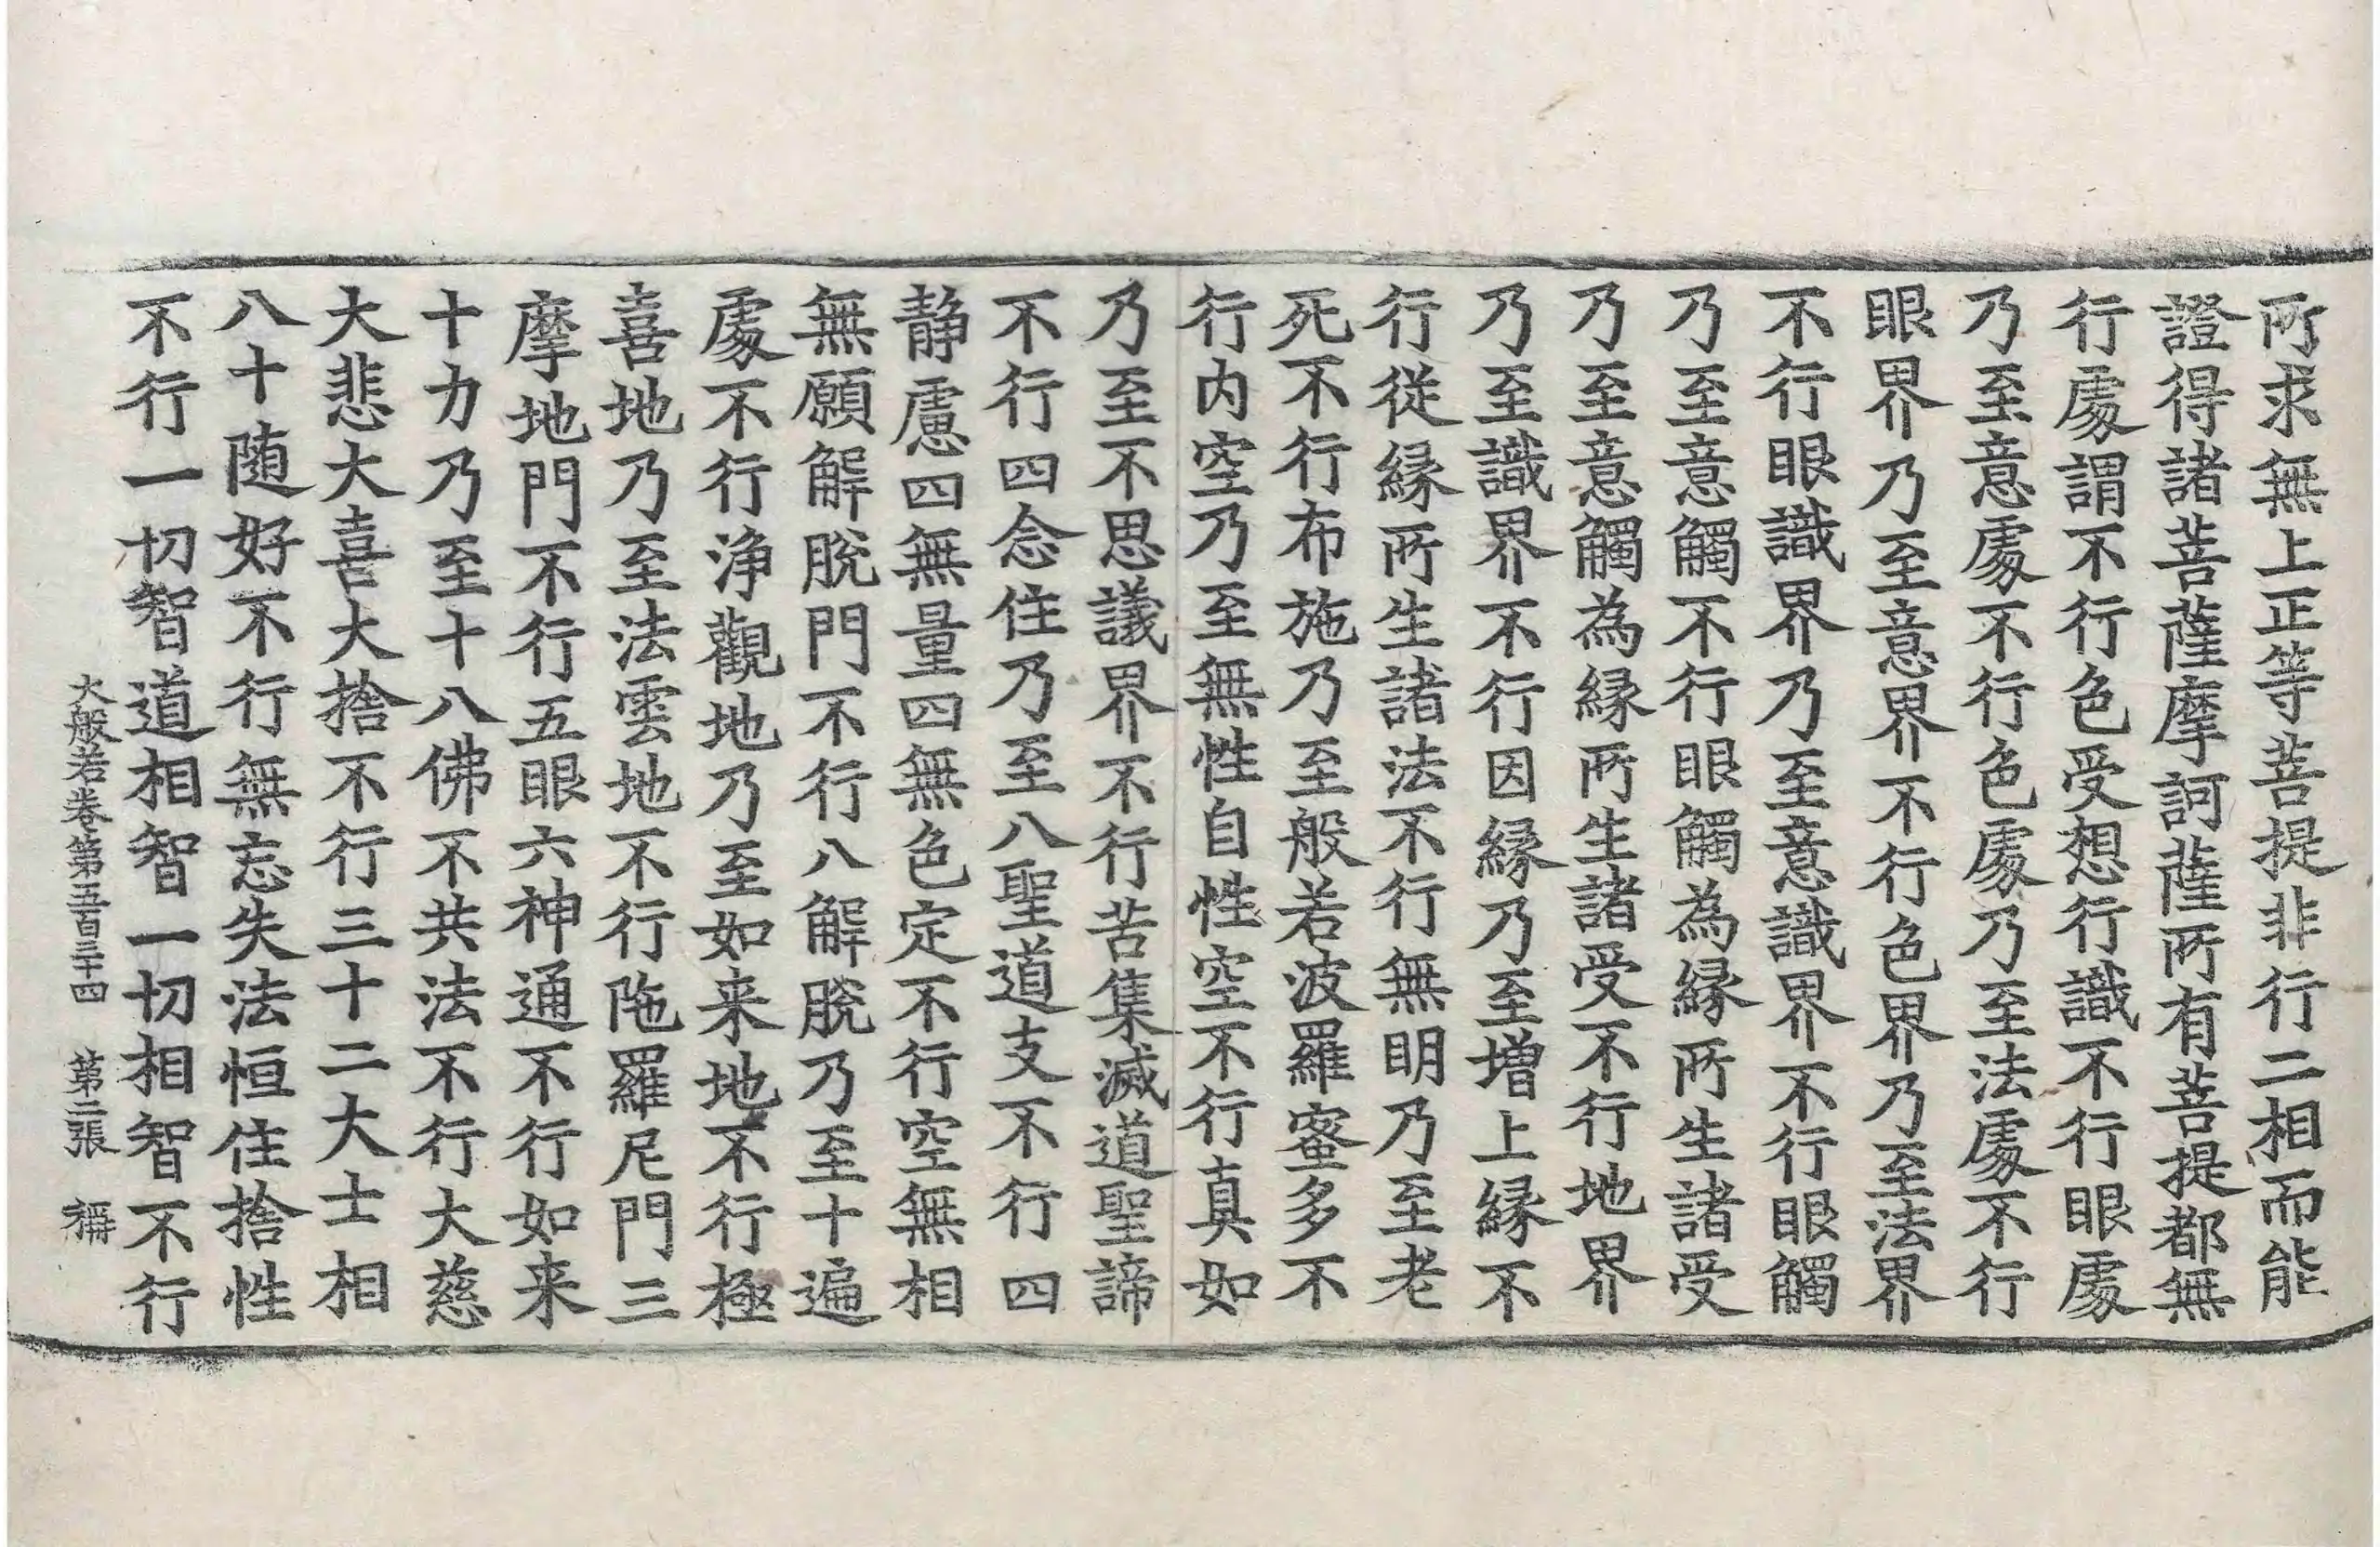 所求無上正等菩提非行二相而能
證得諸菩薩摩訶薩所有菩提都無
行處謂不行色受想行識不行眼處
乃至意處不行色處乃至法處不行
眼界乃至意界不行色界乃至法界
不行眼識界乃至意識界不行眼觸
乃至意觸不行眼觸為縁所生諸受
乃至意觸為縁所生諸受不行地界
乃至識界不行因縁乃至增上縁不
行從縁所生諸法不行無明乃至老
死不行布施乃至般若波羅蜜多不
行内空乃至無性自性空不行真如
乃至不思議界不行苦集滅道聖諦
不行四念住乃至八聖道支不行四
静慮四無量四無色定不行空無相
無願解脫門不行八解脫乃至十遍
處不行淨觀地乃至如来地不行極
喜地乃至法雲地不行陁羅尼門三
摩地門不行五眼六神通不行如来
十力乃至十八佛不共法不行大慈
大悲大喜大捨不行三十二大士相
八十随好不行無忘失法恒住捨性
不行一切智道相智一切相智不行
大般若卷第五百三十四 第二張 稱